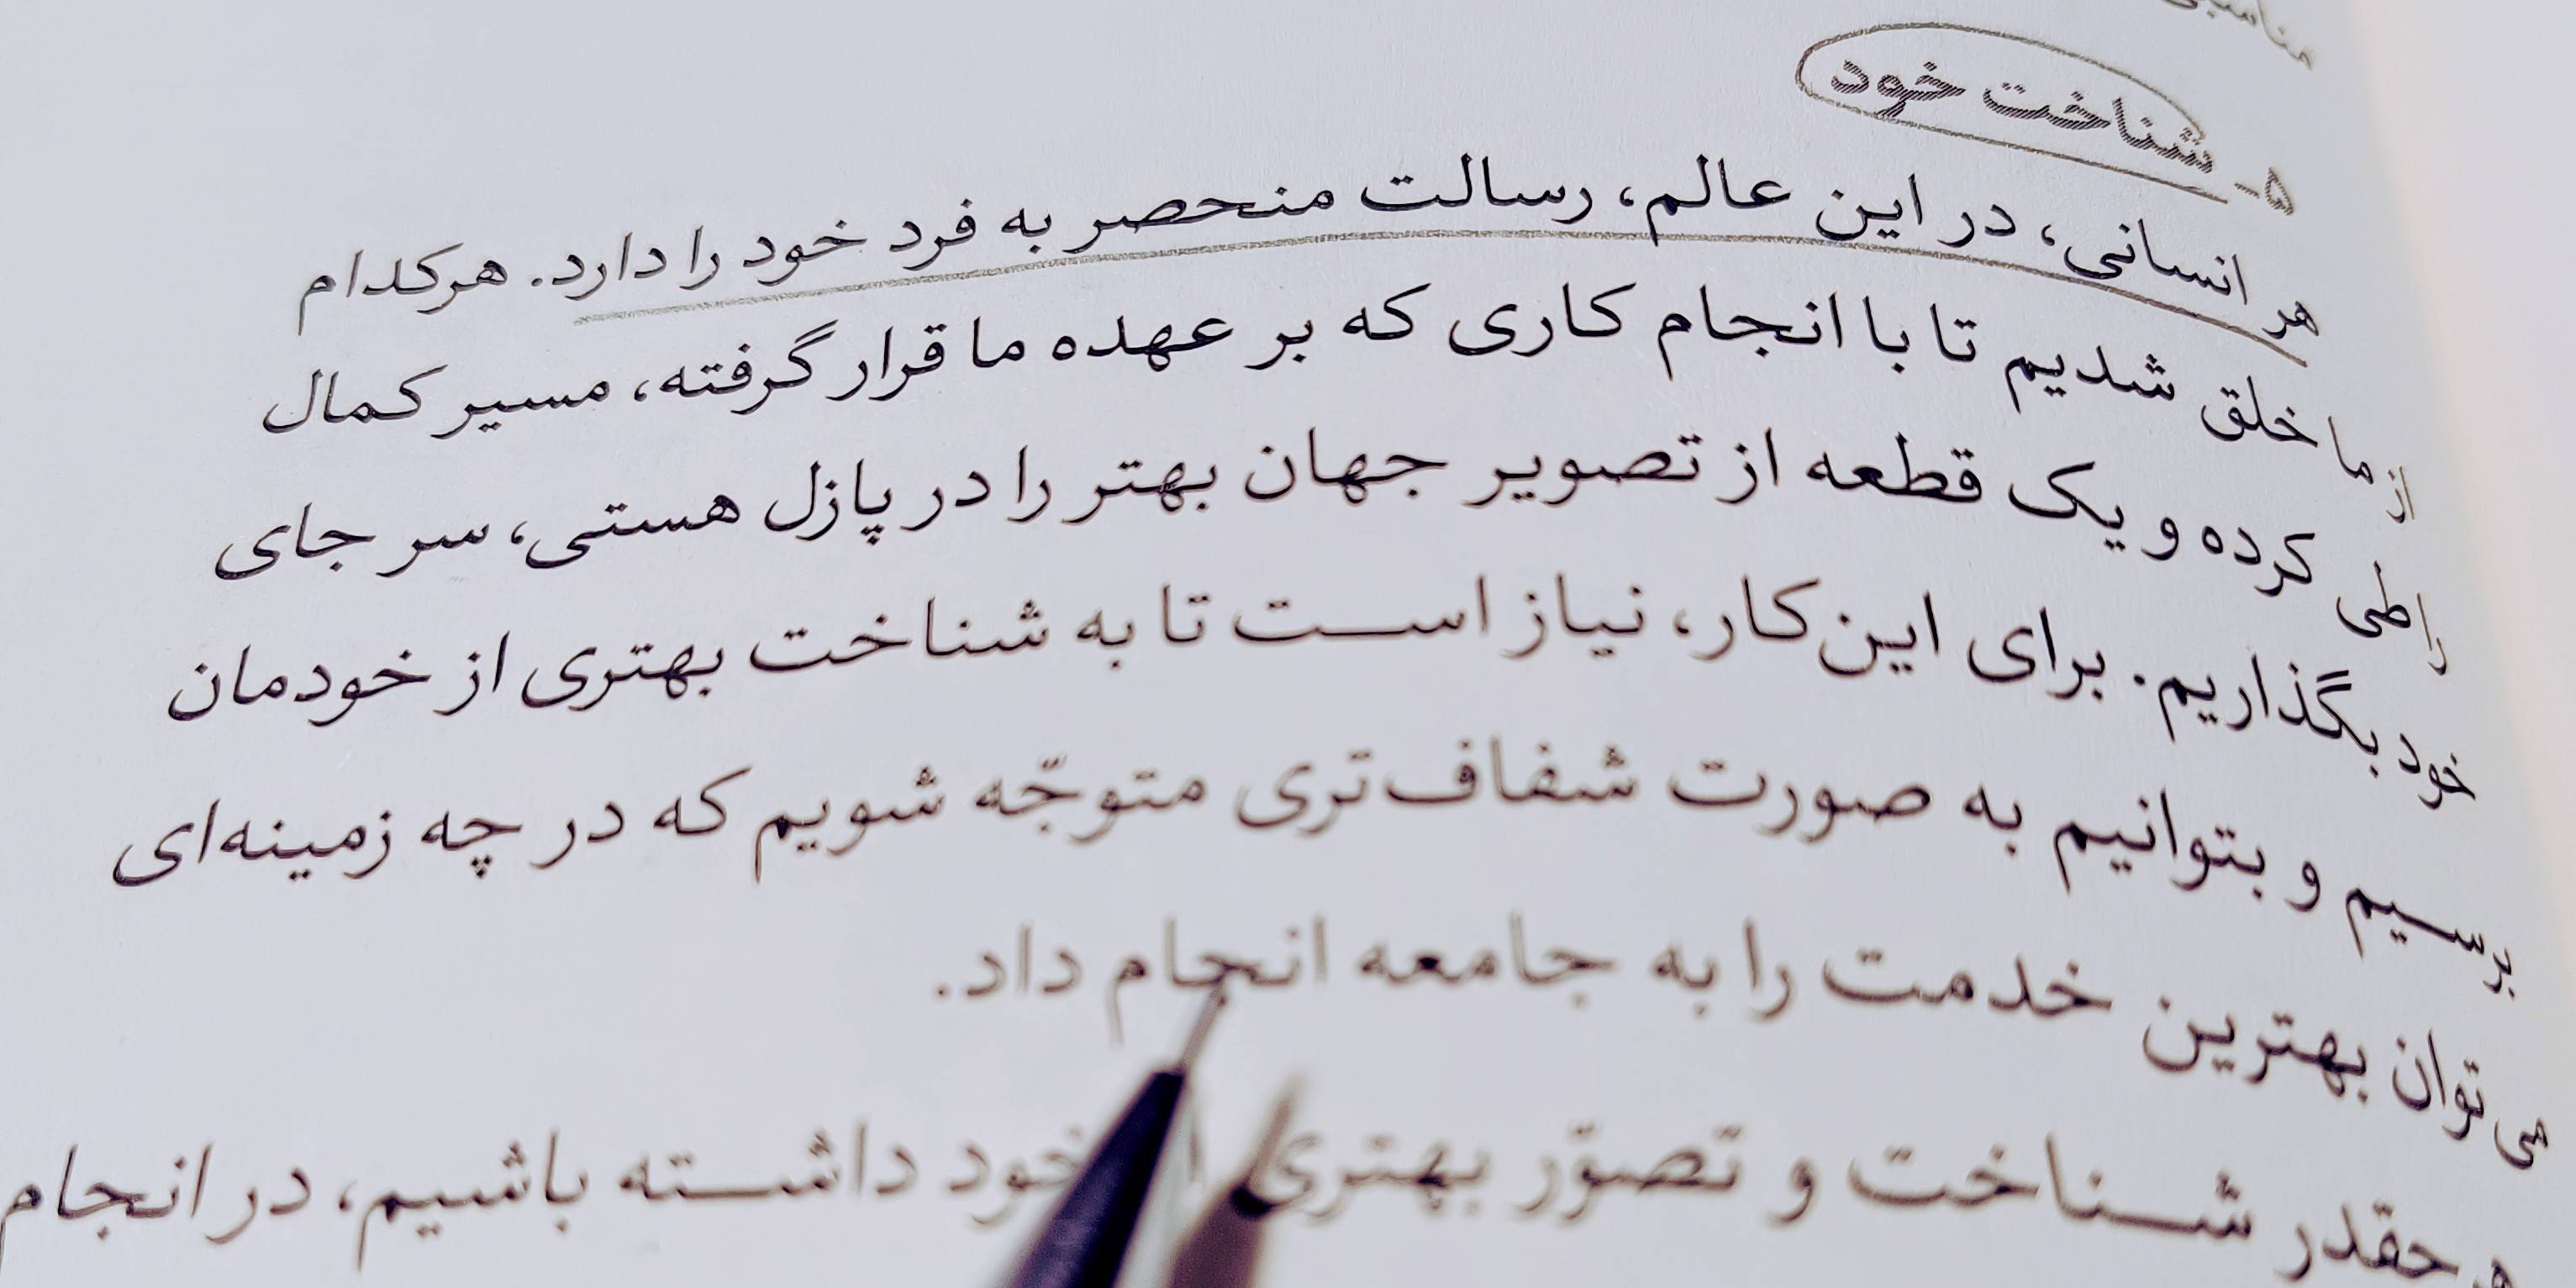 ۵- شناخت خود
هر انسانی، در این عالم، رسالت منحصر به فرد خود را دارد. هرکدام
از ما خلق شدیم تا با انجام کاری که بر عهده ما قرار گرفته، مسیر کمال
را طی کرده و یک قطعه از تصویر جهان بهتر را در پازل هستی، سر جای
خود بگذاریم. برای این‌کار، نیاز است تا به شناخت بهتری از خودمان
برسیم و بتوانیم به صورت شفاف‌تری متوجّه شویم که در چه زمینه‌ای
می‌توان بهترین خدمت را به جامعه انجام داد.
هرچقدر شناخت و تصوّر بهتری خود داشته باشیم، در انجام